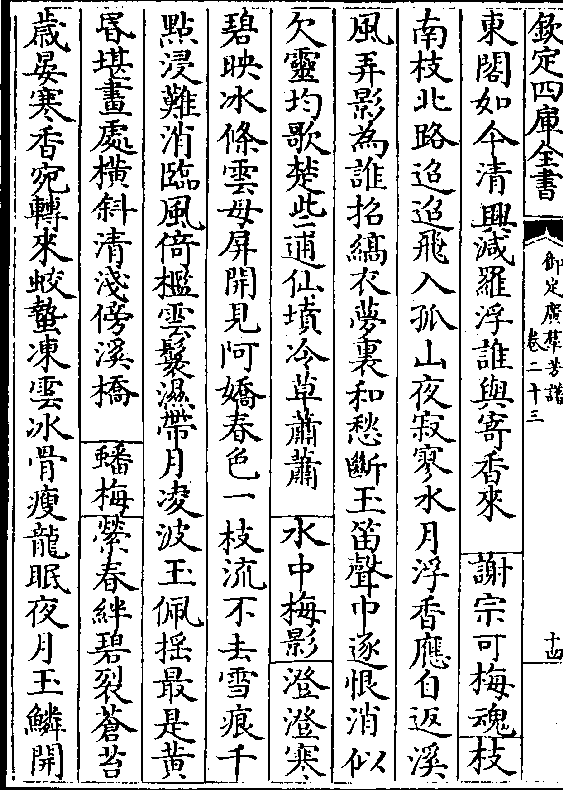 欽定四庫全書
御定廣羣芳譜
卷二十三
十四
東閣如今清興減羅浮誰與寄香來　謝宗可梅魂枝
南枝北路迢迢飛入孤山夜寂寥水月浮香應自返溪
風弄影為誰招縞衣夢裏和愁斷玉笛聲中逐恨消似
欠靈均歌楚些逋仙墳冷草蕭蕭　水中梅影澄澄寒
碧映冰條雲母屏開見阿嬌春色一枝流不去雪痕千
點浸難消臨風倚檻雲鬟濕帶月凌波玉佩搖最是黃
昬堪畫處橫斜清淺傍溪橋　蟠梅縈春絆碧裂蒼苔
歲晏寒香宛轉來蛟蟄凍雲冰骨瘦龍眠夜月玉鱗開